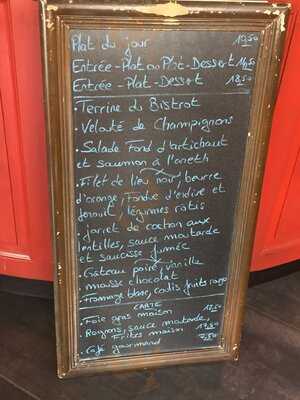 Plat du jour 10,50
Entrée-Plat ou Plat-Dessert 14,50
Entrée-Plat-Dessert 18,50
• Terrine du Bistrot
• Velouté de Champignons
• Salade Fond d'artichaut
et saumon à l'aneth
• Filet de lieu noir, beurre
d'orange, Fondue d'endive et
fenouil, légumes rôtis
• jarret de cochon aux
lentilles, sauce moutarde
et saucisse fumée
• Gâteau poire vanille
mousse chocolat
• Fromage blanc, coulis fruits rouge
CARTE
• Foie gras maison
• Rognons, sauce moutarde,
Frites maison
• Café gourmand